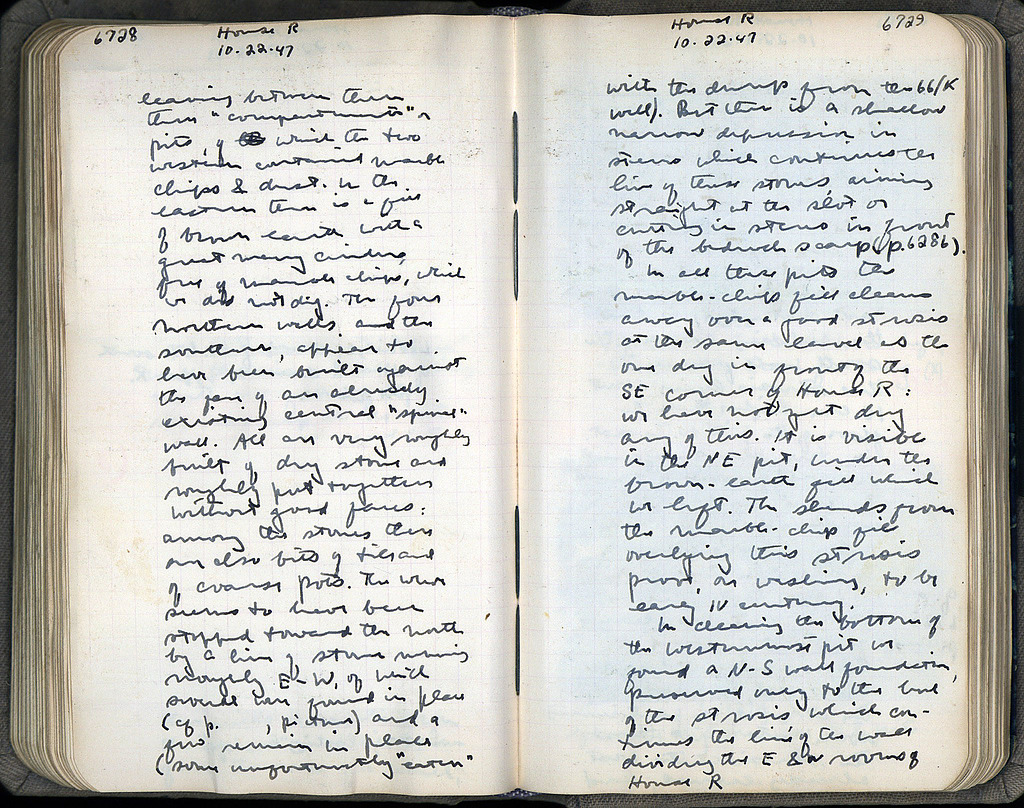 6728
House R
10.22.47
leaving between them
three "compartments" or
pits, of which the two
western contained marble
chips & dust. In the
eastern there is a fill
of brown earth with a
great many cinders,
free of marble chips, which
we did not dig. The four
northern walls, and the
southern, appear to
have been built against
the face of an already
existing central "spinal"
wall. All are very roughly
built of dry stone and
roughly put together
without good faces:
among the stones there
are also bits of tiles and
of coarse pots. The whole
seems to have been
stopped toward the north
by a line of stones running
roughly E-W, of which
several were found in place
(cf p. , picture) and a
few remain in place
(some unfortunately "eaten"
6729
House R
10.22.47
with the dump from the 66/K
well). But there is a shallow
narrow depression in
stereo which continues the
line of these stones, aiming
straight at the slot or
cutting in stereo in front
of the bedrock scarp (p.6286).
In all these pits the
marble-chip fill cleans
away over a good strosis
at the same level as the
one dug in front of the
SE corner of House R:
we have not yet dug
any of this. It is visible
in the NE pit, under the
brown-earth fill which
we left. The sherds from
the marble-chip fill
overlying this strosis
prove, on washing, to be
early IV century.
In cleaning the bottom of
the westernmost pit we
found a N-S wall foundation,
preserved only to the level
of the strosis, which con-
tinues the line of the wall
dividing the E & W rooms of
House R